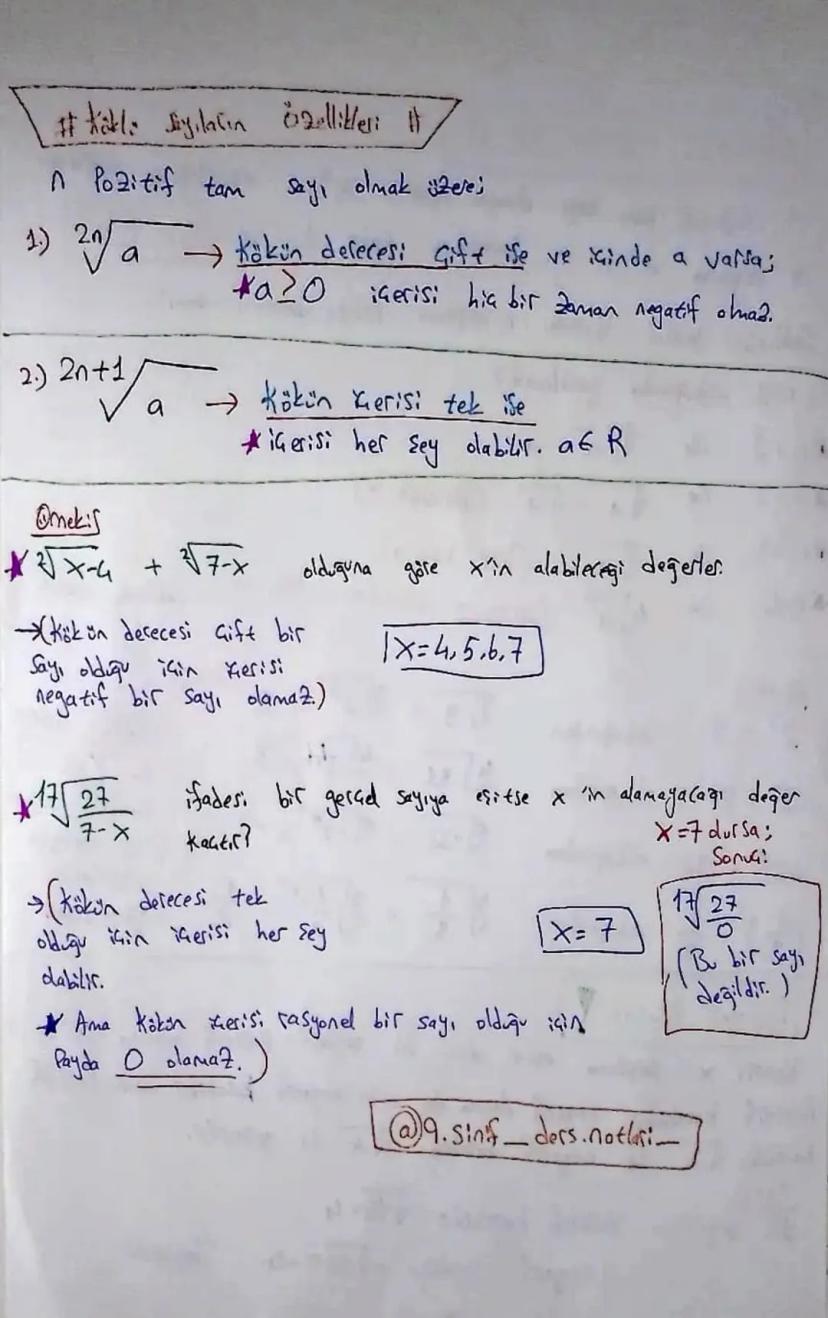 # Köklü Sayıların Özellikleri #
n Pozitif tam sayı olmak üzere;
1.) ²ⁿ√a → Kökün derecesi çift ise ve içinde a varsa;
★a≥0 içerisi hiç bir zaman negatif olmaz.
2.) ²ⁿ⁺¹√a → Kökün içerisi tek ise
★içerisi her şey olabilir. a∈R
Örnek;
★ ²√x-4 + ²√7-x olduğuna göre x'in alabileceği değerler.
→(Kökün derecesi çift bir
sayı olduğu için içerisi
negatif bir sayı olamaz.)
x=4,5,6,7
★ ¹⁷√27/7-x ifadesi bir gerçel sayıya eşitse x 'in alamayacağı değer
kaçtır?
x=7 dursa;
Sonuç:
→(Kökün derecesi tek
olduğu için içerisi her şey
olabilir.
x=7
¹⁷√27/0
(Bu bir sayı
değildir.)
★ Ama kökün içerisi rasyonel bir sayı olduğu için
Payda 0 olamaz.)
@9.sinif_ders.notlari_